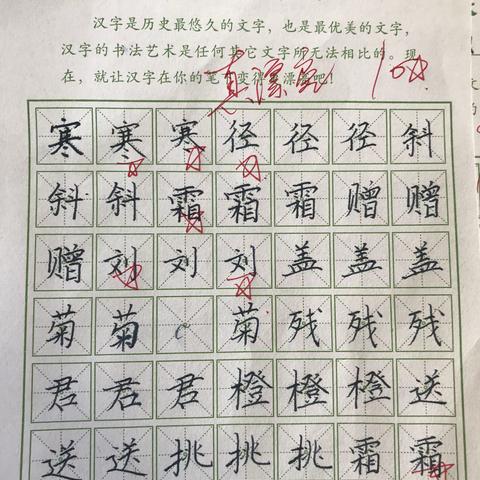 汉字是历史最悠久的文字，也是最优美的文字，
汉字的书法艺术是任何其它文字所无法相比的。现
在，就让汉字在你的笔下变得更漂亮吧！
真漂亮
寒寒寒径径径斜
斜斜霜霜霜赠赠
赠刘刘刘盖盖盖
菊菊菊残残残
君君君橙橙橙送
送送挑挑挑霜霜